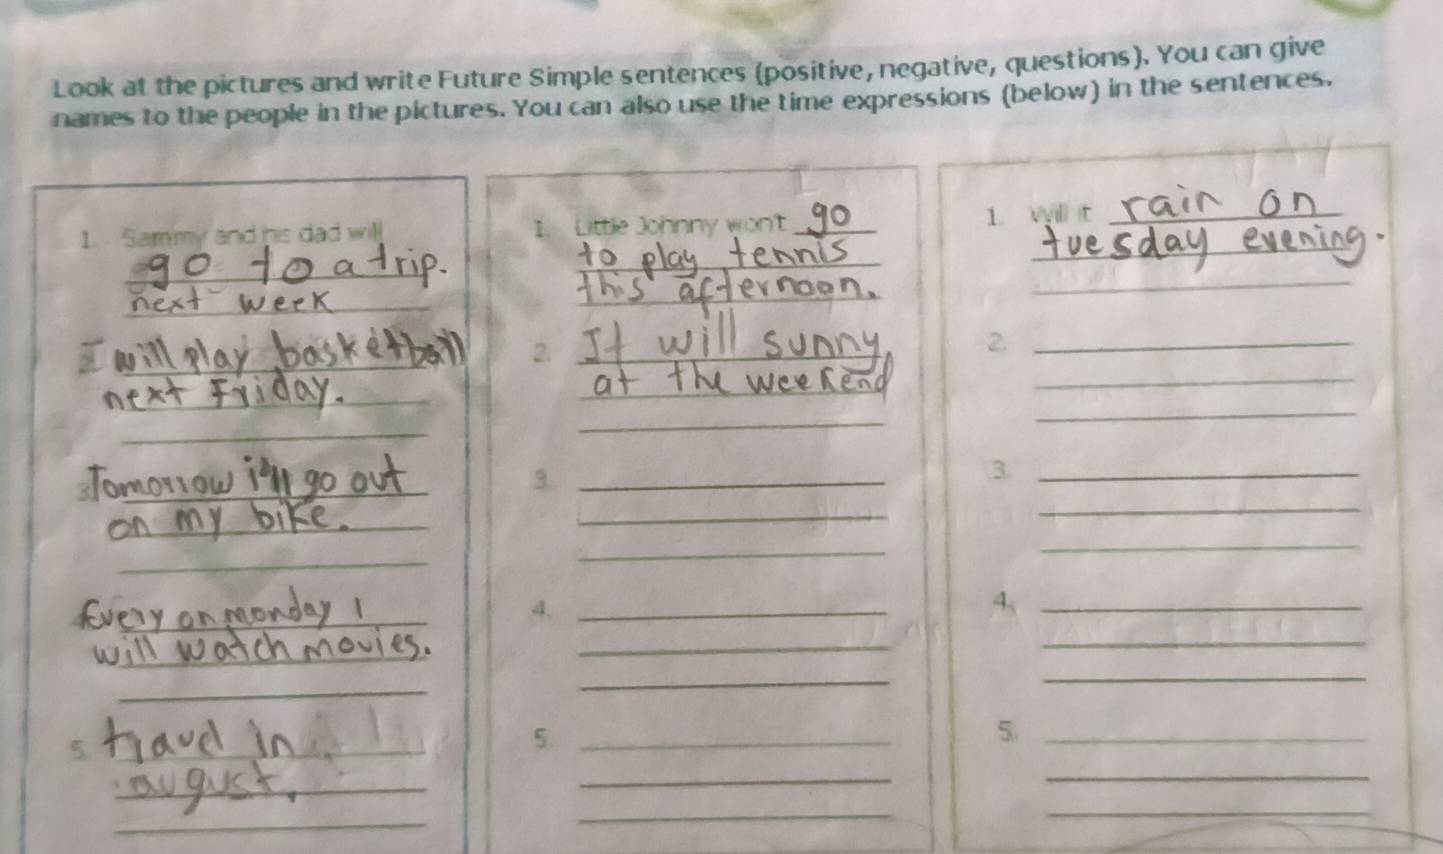 Look at the pictures and write Future Simple sentences (positive, negative, questions). You can give
names to the people in the pictures. You can also use the time expressions (below) in the sentences.
1. Sammy and his dad will
go to a trip.
next week
2. I will play basketball
next Friday.
3. Tomorrow i'll go out
on my bike.
Every on monday I
will watch movies.
5. travel in
august.
1. Little Johnny won't go
to play tennis
this afternoon.
2. It will sunny
at the weekend
3.
4.
5.
1. Will it rain on
tuesday evening.
2.
3.
4.
5.